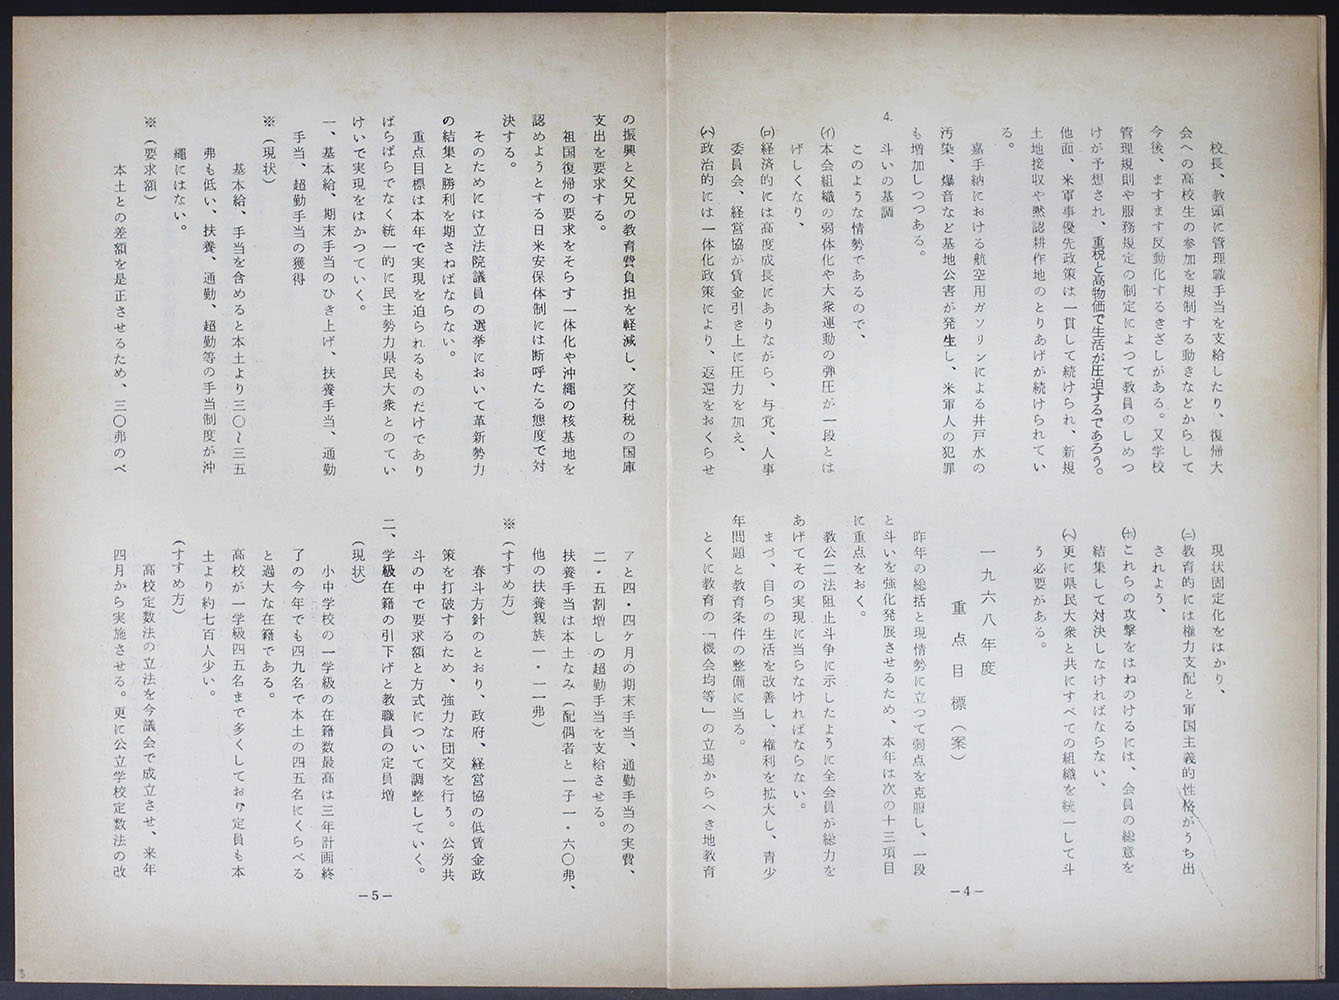 校長、教頭に管理職手当を支給したり、復帰大
会への高校生の参加を規制する動きなどからして
今後、ますます反動化するきざしがある。又学校
管理規則や服務規定の制定によつて教員のしめつ
けが予想され、重税と高物価で生活が圧迫するであろう。
他面、米軍事優先政策は一貫して続けられ、新規
土地接収や黙認耕作地のとりあげが続けられてい
る。
嘉手納における航空用ガソリンによる井戸水の
汚染、爆音など基地公害が発生し、米軍人の犯罪
も増加しつつある。
4. 斗いの基調
このような情勢であるので、
(イ)本会組織の弱体化や大衆運動の弾圧が一段とは
げしくなり、
(ロ)経済的には高度成長にありながら、与党、人事
委員会、経営協が賃金引き上に圧力を加え、
(ハ)政治的には一体化政策により、返還をおくらせ
現状固定化をはかり、
(ニ)教育的には権力支配と軍国主義的性格がうち出
されよう、
(ホ)これらの攻撃をはねのけるには、会員の総意を
結集して対決しなければならない、
(ヘ)更に県民大衆と共にすべての組織を統一して斗
う必要がある。
一九六八年度
重点目標(案)
昨年の総括と現情勢に立つて弱点を克服し、一段
と斗いを強化発展させるため、本年は次の十三項目
に重点をおく。
教公二法阻止斗争に示したように全会員が総力を
あげてその実現に当らなければならない。
まづ、自らの生活を改善し、権利を拡大し、青少
年問題と教育条件の整備に当る。
とくに教育の「機会均等」の立場からへき地教育
—4—
の振興と父兄の教育費負担を軽減し、交付税の国庫
支出を要求する。
祖国復帰の要求をそらす一体化や沖縄の核基地を
認めようとする日米安保体制には断呼たる態度で対
決する。
そのためには立法院議員の選挙において革新勢力
の結集と勝利を期さねばならない。
重点目標は本年で実現を迫られるものだけであり
ばらばらでなく統一的に民主勢力県民大衆とのてい
けいで実現をはかつていく。
一、基本給、期末手当のひき上げ、扶養手当、通勤
手当、超勤手当の獲得
※(現状)
基本給、手当を含めると本土より三〇~三五
弗も低い、扶養、通勤、超勤等の手当制度が沖
縄にはない。
※(要求額)
本土との差額を是正させるため、三〇弗のベ
アと四・四ヶ月の期末手当、通勤手当の実費、
二・五割増しの超勤手当を支給させる。
扶養手当は本土なみ(配偶者と一子一・六〇弗、
他の扶養親族一・一一弗)
※(すすめ方)
春斗方針のとおり、政府、経営協の低賃金政
策を打破するため、強力な団交を行う。公労共
斗の中で要求額と方式について調整していく。
二、学級在籍の引下げと教職員の定員増
(現状)
小中学校の一学級の在籍数最高は三年計画終
了の今年でも四九名で本土の四五名にくらべる
と過大な在籍である。
高校が一学級四五名まで多くしており定員も本
土より約七百人少い。
(すすめ方)
高校定数法の立法を今議会で成立させ、来年
四月から実施させる。更に公立学校定数法の改
—5—